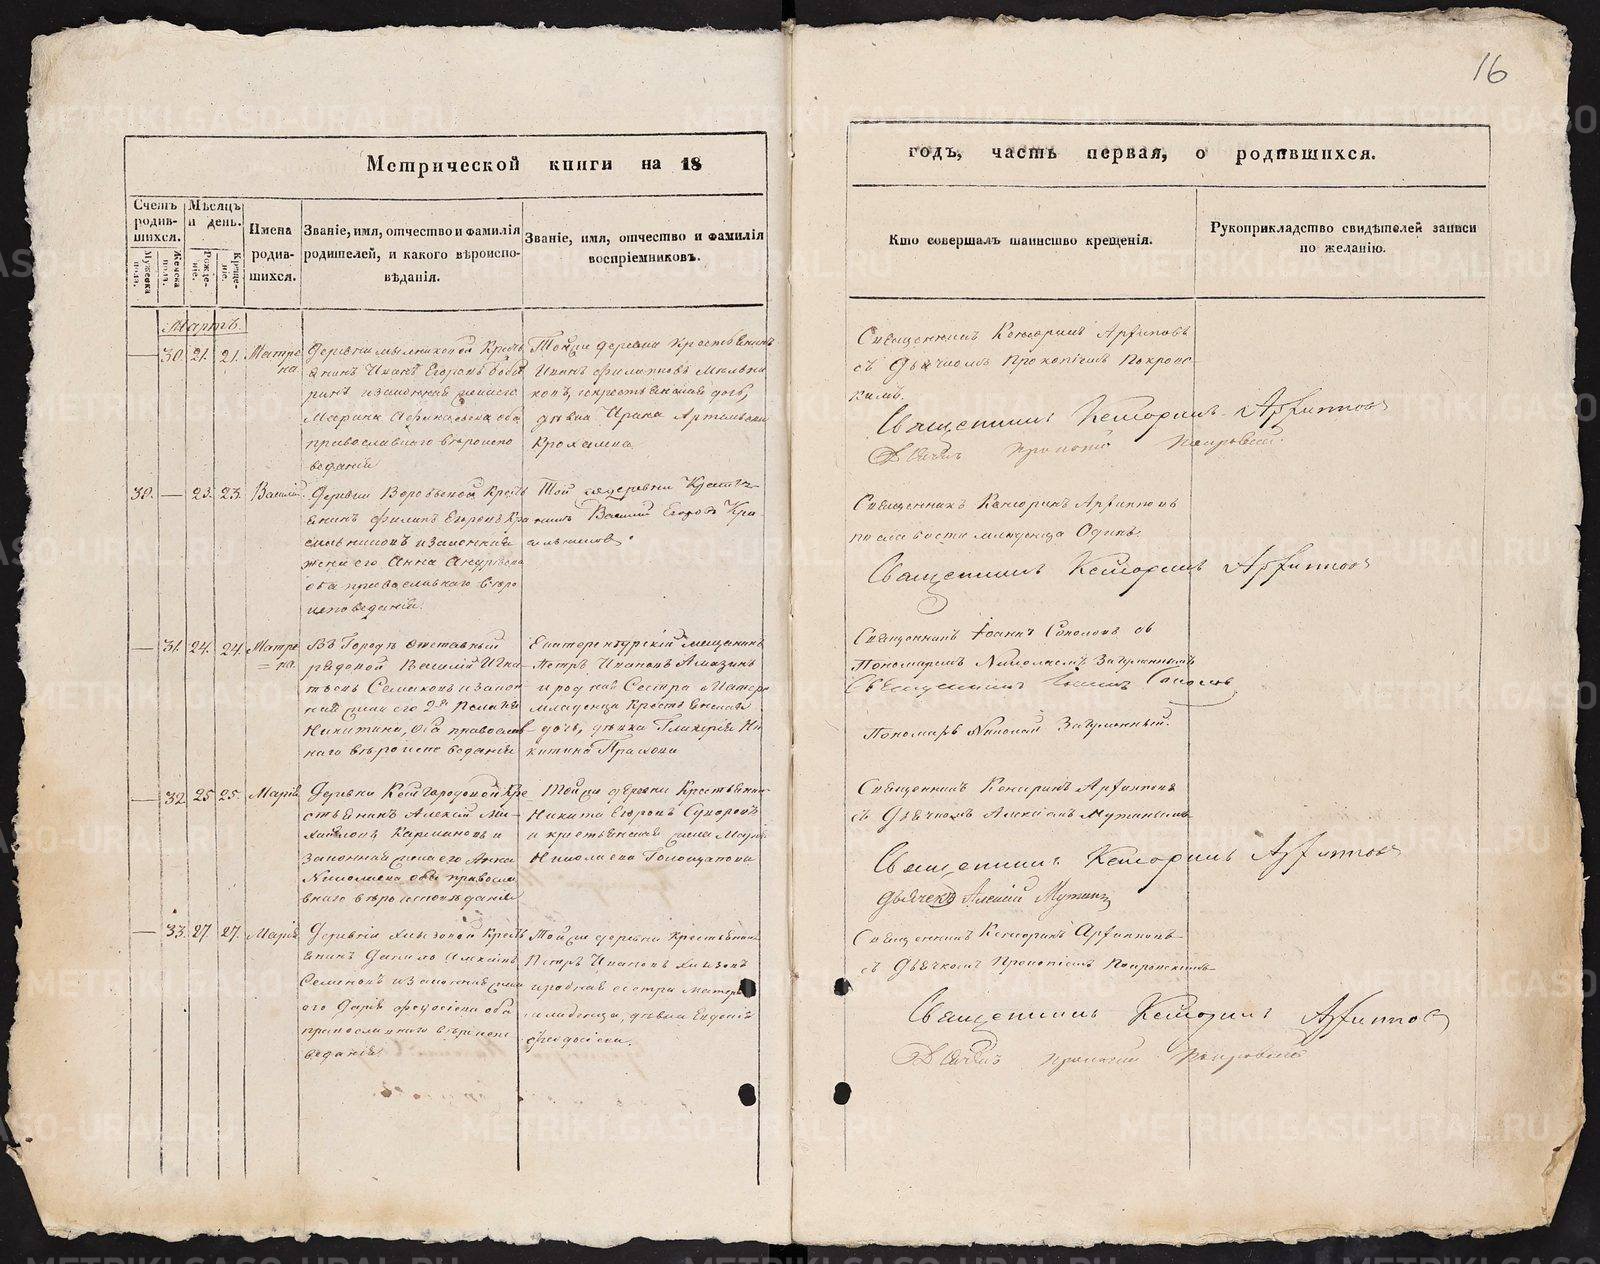 16
Метрической книги на 18
годъ, часть первая, о родившихся.
Счетъ родив- шихся.
Мужеска пола.
Женска пола.
Мѣсяцъ и день.
Рожде- ніе.
Креще- ніе.
Имена родив- шихся.
Званіе, имя, отчество и фамилія
родителей, и какого вѣроиспо-
вѣданія.
Званіе, имя, отчество и фамилія
воспріемниковъ.
Кто совершалъ таинство крещенія.
Рукоприкладство свидѣтелей записи
по желанію.
Мартъ.
30. 21. 21. Матре
на.
Деревни Мыльниковой Кресть
янинъ Иванъ Егоровъ
и законная жена его
Марина оба
православнаго вѣроиспо
веданія
Тойже деревни Крестьянинъ
Иванъ Филиповъ Мыльни
ковъ, и крестьянская дочь,
дѣвка Ирина Артемьева
Крохалева
Священникъ Кенсоринъ Арфиповъ
съ Дьячкомъ Прокопіемъ Покровс
кимъ.
Священникъ Кенсоринъ Арфиповъ
Дьячекъ Прокопій Покровскій.
30. — 23. 23. Василій
Деревни Воробьевой Кресть
янинъ Филипъ Егоровъ Кра
сильниковъ и законная
жена его Анна Андреева
оба православнаго вѣро
исповеданія.
Той же деревни Кресть
янинъ Василій Егоровъ Кра
сильниковъ.
Священникъ Кенсоринъ Арфиповъ
по слабости младенца Одинъ.
Священникъ Кенсоринъ Арфиповъ
— 31. 24. 24. Матре
на.
Въ Городѣ отставный
рядовой Василій Игна
тьевъ Семеновъ и закон
ная жена его 2я Пелагѣя
Никитина, оба православ
наго вѣроисповеданія
Екатеренбургскій мещанинъ
Петръ Ивановъ
и родная Сестра Матери
младенца Крестьянская
дочь, дѣвка Гликерія Ни
китина
Священникъ Іоаннъ Соколовъ съ
Пономаремъ Николаемъ Загуменнымъ
Священникъ Іоаннъ Соколовъ
Пономарь Николай Загуменный.
— 32. 25. 25. Марія
Деревни Койгородовой Кре
стьянинъ Алексѣй Ми
хайловъ Кармановъ и
законная жена его Анна
Николаева оба православ
внаго вѣроисповѣданія
Тойже деревни Крестьянинъ
Никита Егоровъ Суворовъ
и крестьянская жена Марія
Николаева Голощапова
Священникъ Кенсоринъ Арфиповъ
съ Дьячкомъ Алексѣемъ Мутинымъ
Священникъ Кенсоринъ Арфиповъ
Дьячекъ Алексѣй Мутинъ
— 33. 27. 27. Марія
Деревни Хлызовой Кресть
янинъ Данило
Семеновъ и законная жена
его Дарія Федосіева оба
православнаго вѣроиспо
веданія
Тойже деревни Крестьянинъ
Петръ Ивановъ Хлызовъ
и родная сестра матери
младенца, дѣвка Евдокія
Федосіева.
Священникъ Кенсоринъ Арфиповъ
съ Дьячкомъ Прокопіемъ Покровскимъ
Священникъ Кенсоринъ Арфиповъ
Дьячекъ Прокопій Покровскій
METRIKI.GASO-URAL.RU